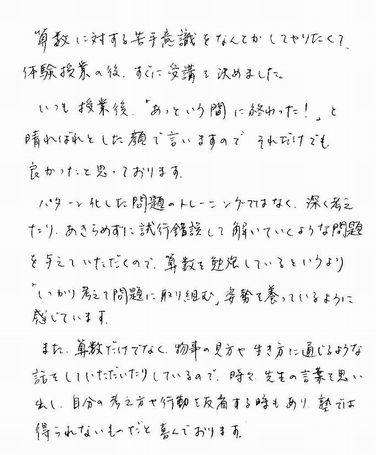 算数に対する苦手意識をなんとかしてやりたくて、
体験授業の後、すぐに受講を決めました。
いつも授業後、「あっという間に終わった！」と
晴ればれとした顔で言いますので それだけでも
良かったと思っております。
パターン化した問題のトレーニングではなく、深く考え
たり、あきらめずに試行錯誤して解いていくような問題
を与えていただくので、算数を勉強しているというより
「しっかり考えて問題に取り組む」姿勢を養っているように
感じています。
また、算数だけでなく、物事の見方や生き方に通じるような
話をしていただいたりしているので、時々、先生の言葉を思い
出し、自分の考え方や行動を反省する時もあり、塾では
得られないものだと喜んでおります。